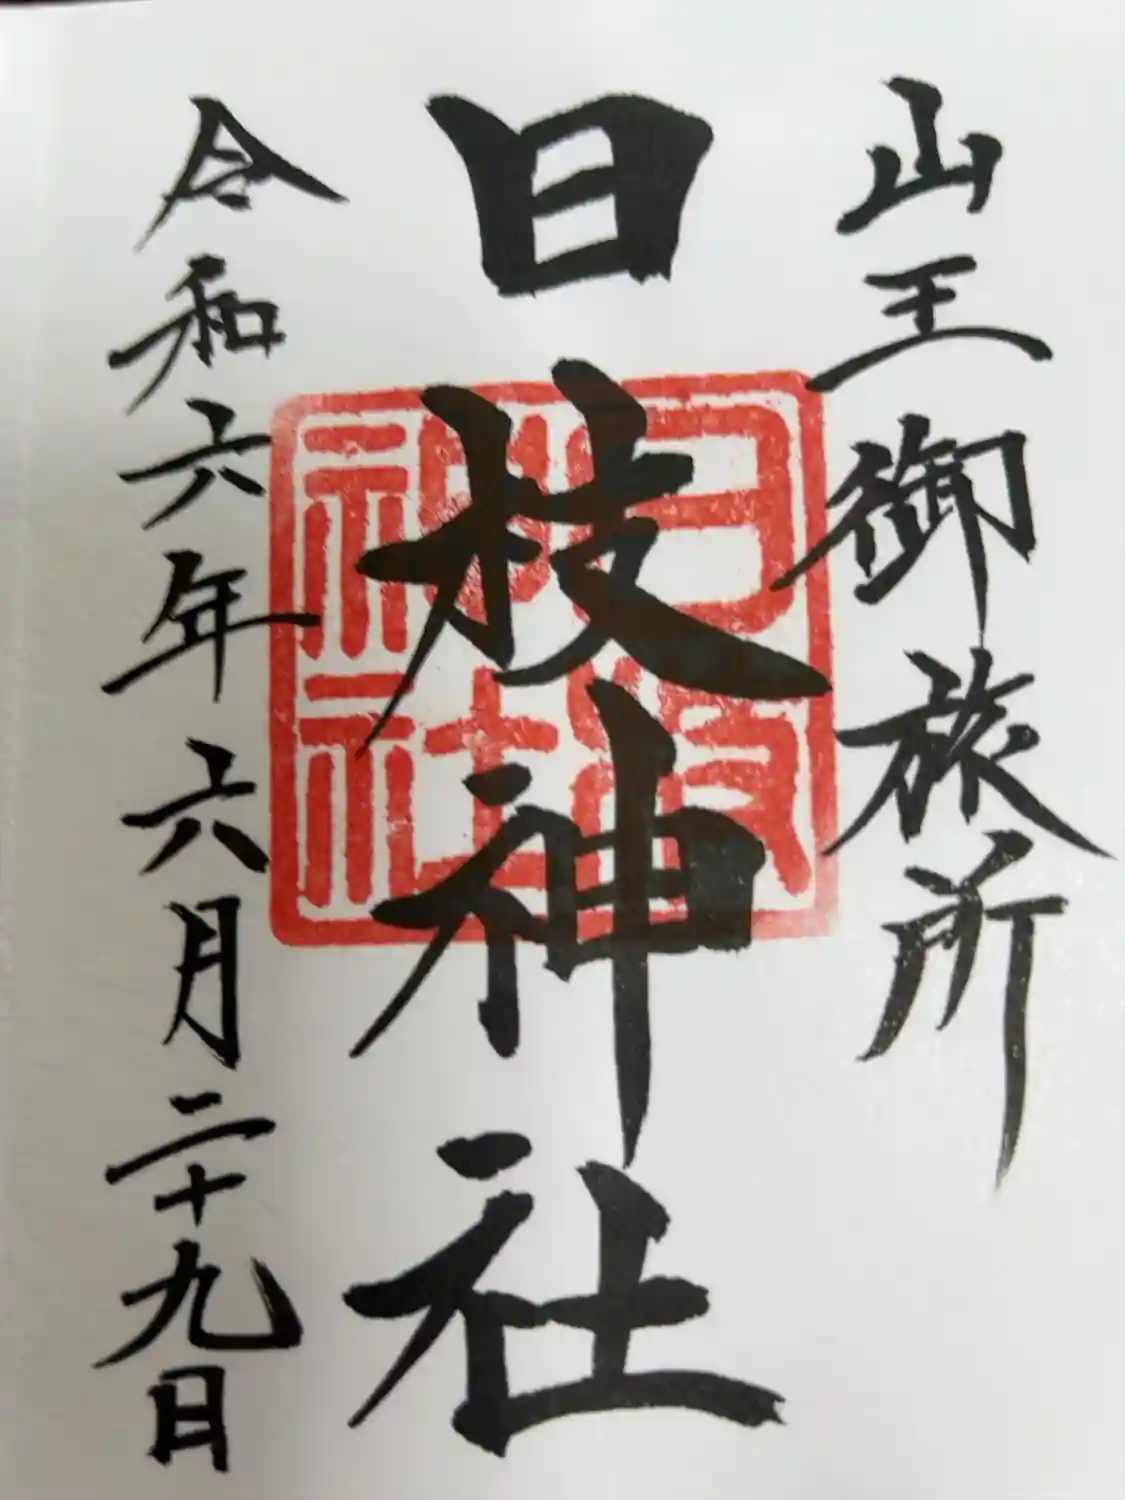 山王御旅所
日枝神社
日枝神社
令和六年六月二十九日